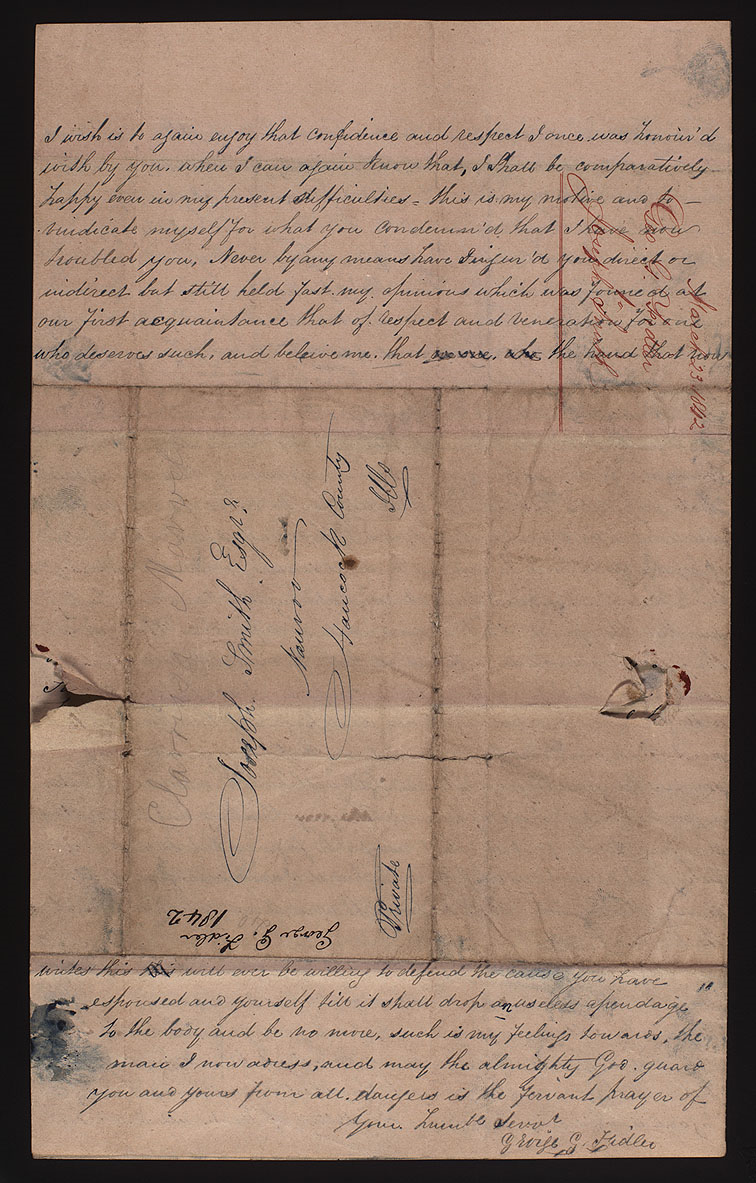 I wish is to again enjoy that confidence and respect I once was honour'd
with by you. when I can again know that, I shall be comparatively
happy even in my present difficulties = this is my motive and to
vindicate myself for what you condemn'd that I have now
troubled you, Never by any means have I injur'd you direct or
indirect but still held fast my opinions which was formed at
our first acquaintance that of respect and veneration for one
who deserves such, and beleive me. that the hand that now
March 23 1842
Geo G. Fidler
to
Joseph Smith
Joseph Smith Esqr.
Nauvoo
Hancock County
Ills
Private
George G. Fidler
1842
writes this will ever be willing to defend the cause you have
espoused and yourself till it shall drop an useless apendage
to the body and be no more, such is my feelings towards, the
man I now adress, and may the almighty God. guard
you and yours from all. dangers is the fervant prayer of
Your. humbe Servt
George G. Fidler